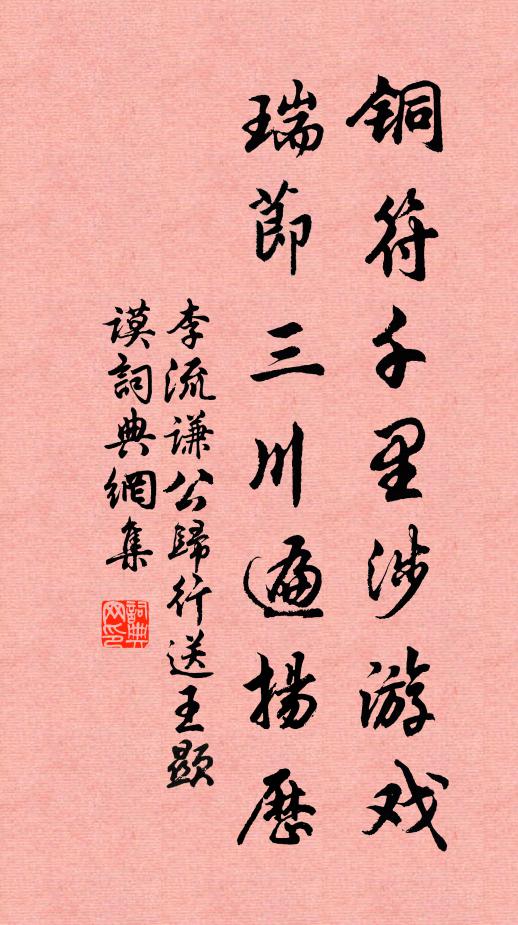 铜符千里涉游戏
瑞節三川遍揚歷
李流谦公歸行送王顯
謨詞典網集
詞典网印